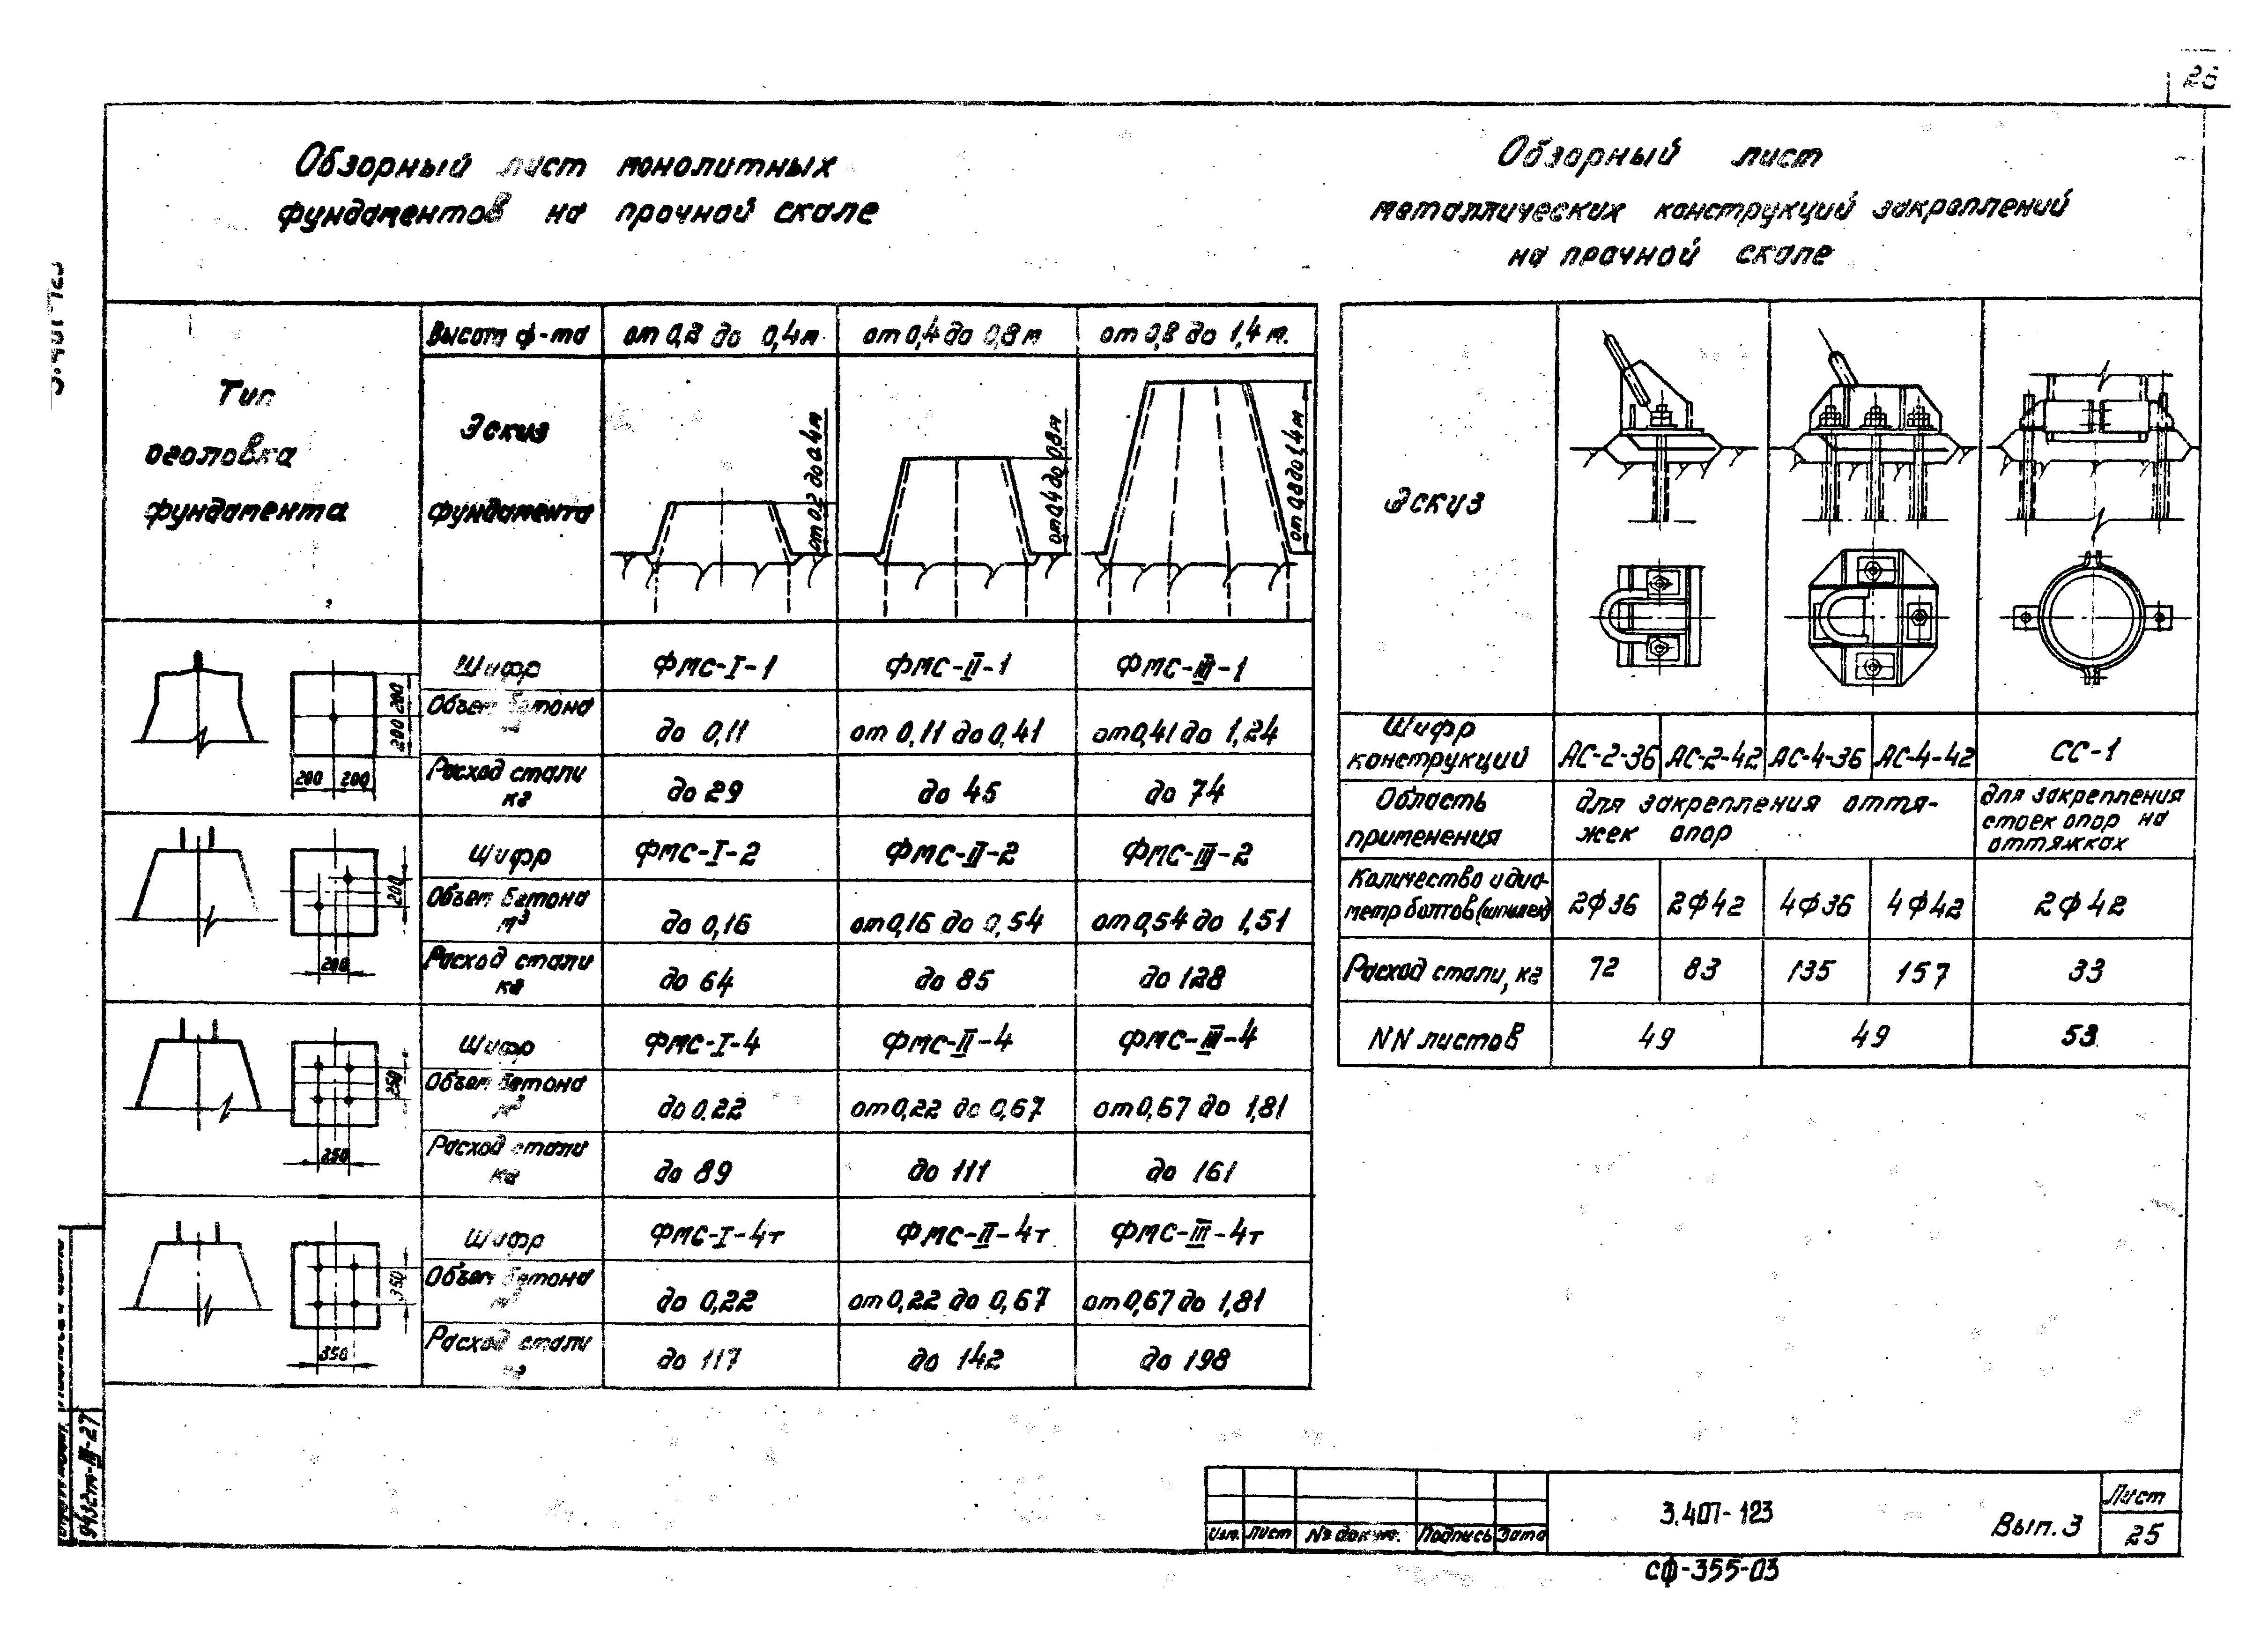 26
Обзорный лист монолитных
фундаментов на прочной скале
Обзорный лист
металлических конструкций закреплений
на прочной скале
Тип
оголовка
фундамента
Высота ф-та
от 0,2 до 0,4м
от 0,4 до 0,8м
от 0,8 до 1,4м.
Эскиз
фундамента
от 0,2 до 0,4м
от 0,4 до 0,8м
от 0,8 до 1,4м
200 200
200 200
Шифр
ФМС-I-1
ФМС-II-1
ФМС-III-1
Объем бетона
до 0,11
от 0,11 до 0,41
от 0,41 до 1,24
Расход стали
кг
до 29
до 45
до 74
200
200
Шифр
ФМС-I-2
ФМС-II-2
ФМС-III-2
Объем бетона
м³
до 0,16
от 0,16 до 0,54
от 0,54 до 1,51
Расход стали
кг
до 64
до 85
до 128
250
250
Шифр
ФМС-I-4
ФМС-II-4
ФМС-III-4
Объем бетона
м³
до 0.22
от 0,22 до 0,67
от 0,67 до 1,81
Расход стали
кг
до 89
до 111
до 161
350
350
Шифр
ФМС-I-4т
ФМС-II-4т
ФМС-III-4т
Объем бетона
м³
до 0,22
от 0,22 до 0,67
от 0,67 до 1,81
Расход стали
до 117
до 142
до 198
Эскиз
Шифр
конструкций
АС-2-36
АС-2-42
АС-4-36
АС-4-42
СС-1
Область
применения
для закрепления оття-
жек опор
для закрепления
стоек опор на
оттяжках
Количество и диа-
метр болтов (шпилек)
2ф36
2ф42
4ф36
4ф42
2ф42
Расход стали, кг
72
83
135
157
33
NN листов
49
49
53
9432тм-III-27
Изм.
Лист
№ докум.
Подпись
Дата
3.407-123
Вып. 3
Лист
25
СФ-355-03